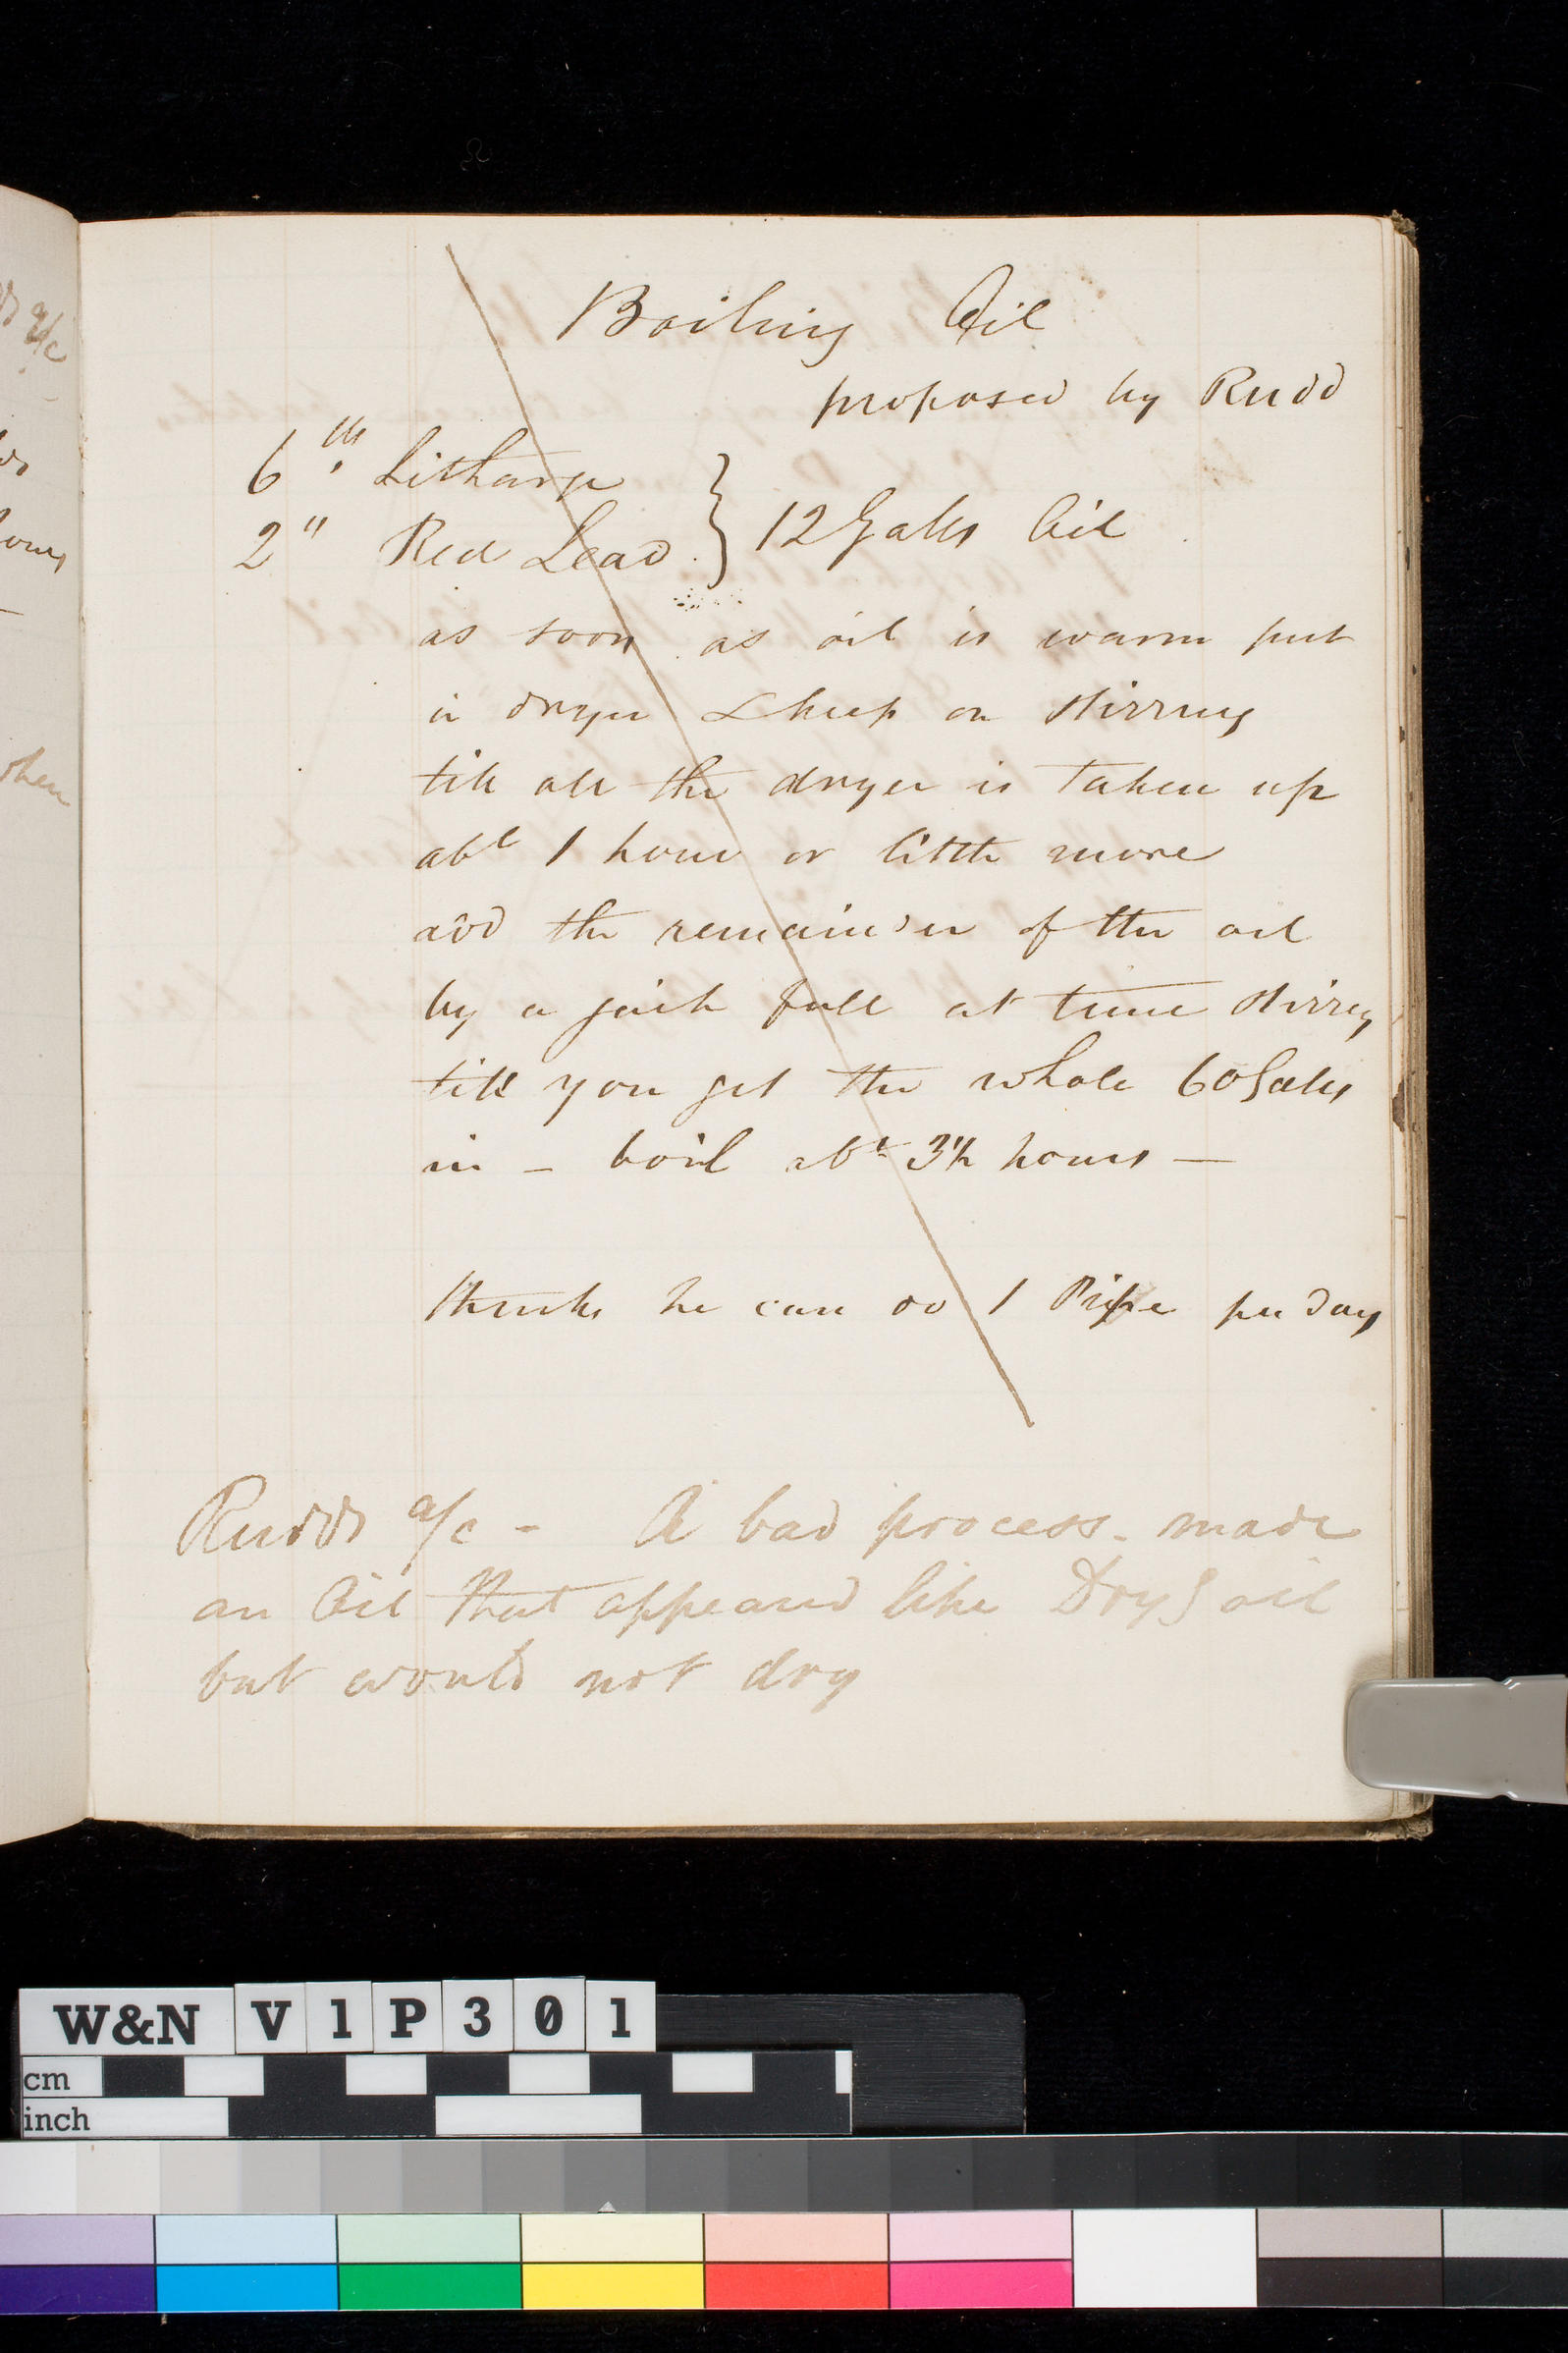 Boiling Oil
proposed by Rudd
6 lb. Litharge
2 " Red Lead } 12 Galls Oil
as soon as oil is warm put
in dryer & keep on stirring
till all the dryer is taken up
abt 1 hour or little more
add the remainder of the oil
by a jack full at time stirrg
till you get the whole 60 Galls
in – boil abt 3½ hours —
thinks he can do 1 Pipe per day
Rudds a/c - A bad process - made
an Oil that appeared like Dryg oil
but would not dry
a/c
when
W&N V1P301
cm
inch